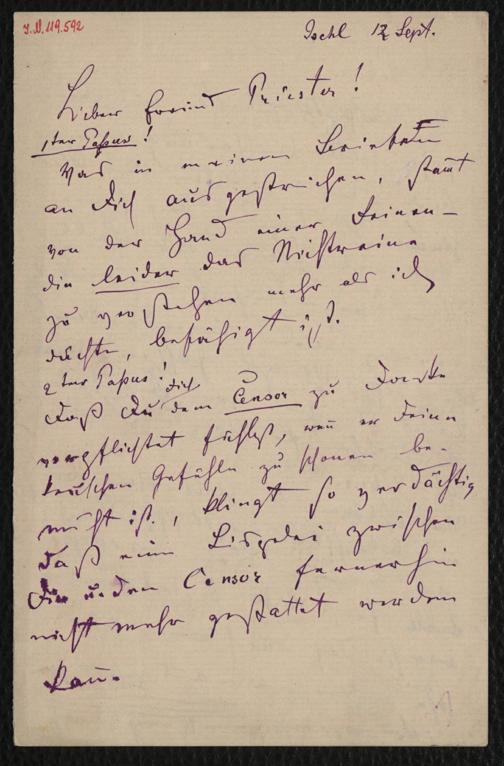 I.N. 119.592
Ischl 12 Sept.
Lieber Freund Priester!
1ter Passus!
Was in meinem
an Dich ausgestrichen, stamt
von der Hand einer Feinen –
die leider das Nichtreine
zu verstehen mehr als ich
dachte, befähigt ist.
2ter Passus!
Daß Du dich dem Censor zu Danke
verpflichtet fühlst, wenn er Deine
keuschen Gefühle zu schonen be-
müht ist, klingt so verdächtig
daß eine Lispelei zwischen
Dir u. dem Censor fernerhin
nicht mehr gestattet werden
kan̄.